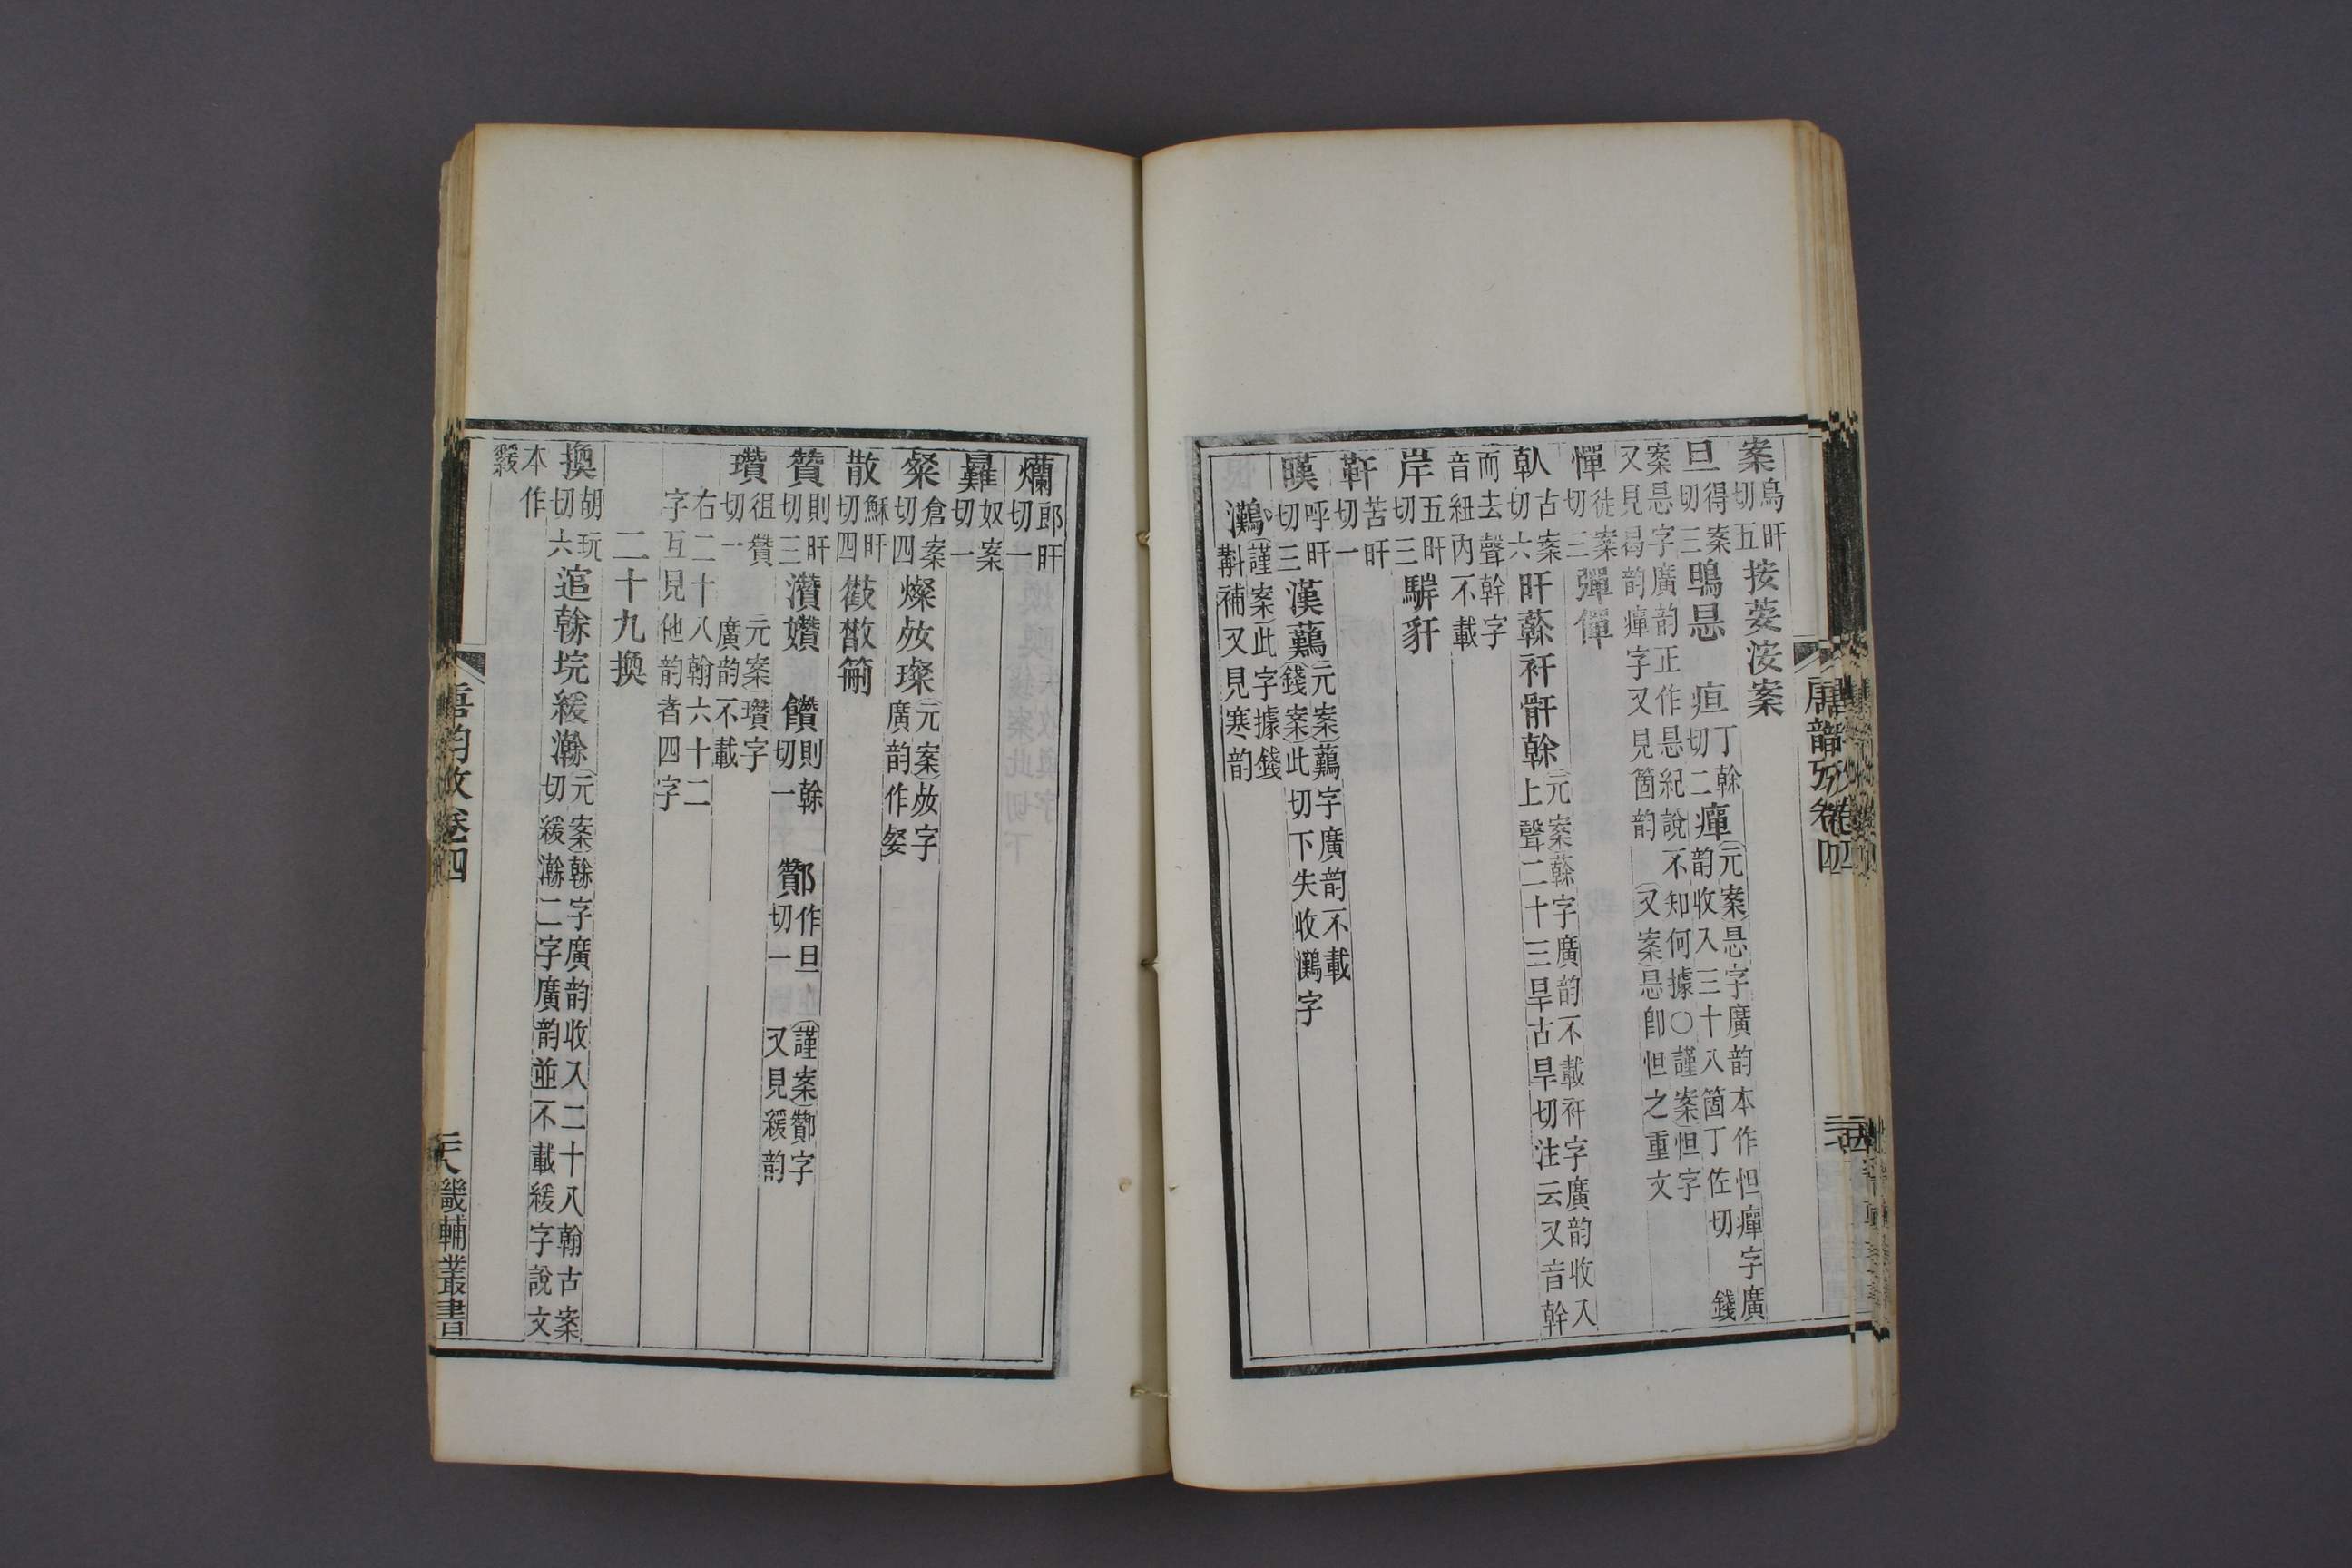 案烏旰切五按荌洝案
旦得案切三鴠㫜　疸丁幹切二癉元案㫜字廣韵本作怛癉字廣韵收入三十八箇丁佐切　錢
案㫜字廣韵正作㫜紀說不知何據○謹案怛字又見曷韵癉字又見箇韵　又案㫜卽怛之重文
憚徒案切三彈僤
倝古案切六旰䕾衦骭榦元案䕾字廣韵不載衦字廣韵收入上聲二十三旱古旱切注云又音幹
而去聲幹字音紐內不載
岸五旰切三駻豻
靬苦旰切一
暵呼旰切三漢䕼元案䕼字廣韵不載錢案此切下失收灘字
灘謹案此字據錢斠補又見寒韵
唐韻攷卷四
爤郎旰切一
難奴案切一
粲倉案切四燦㛑璨元案㛑字廣韵作㛑
散穌旰切四㪔㪚䉈
贊則旰切三灒孏　饡則榦切一　酇作旦切一　謹案酇字又見緩韵
瓚徂贊切一　元案瓚字廣韵不載
右二十八翰六十二字互見他韵者四字
二十九換
換胡玩切六逭榦垸緩瀚元案榦字廣韵收入二十八翰古案切緩瀚二字廣韵並不載緩字說文
本作緩
唐韵攷卷四
畿輔叢書